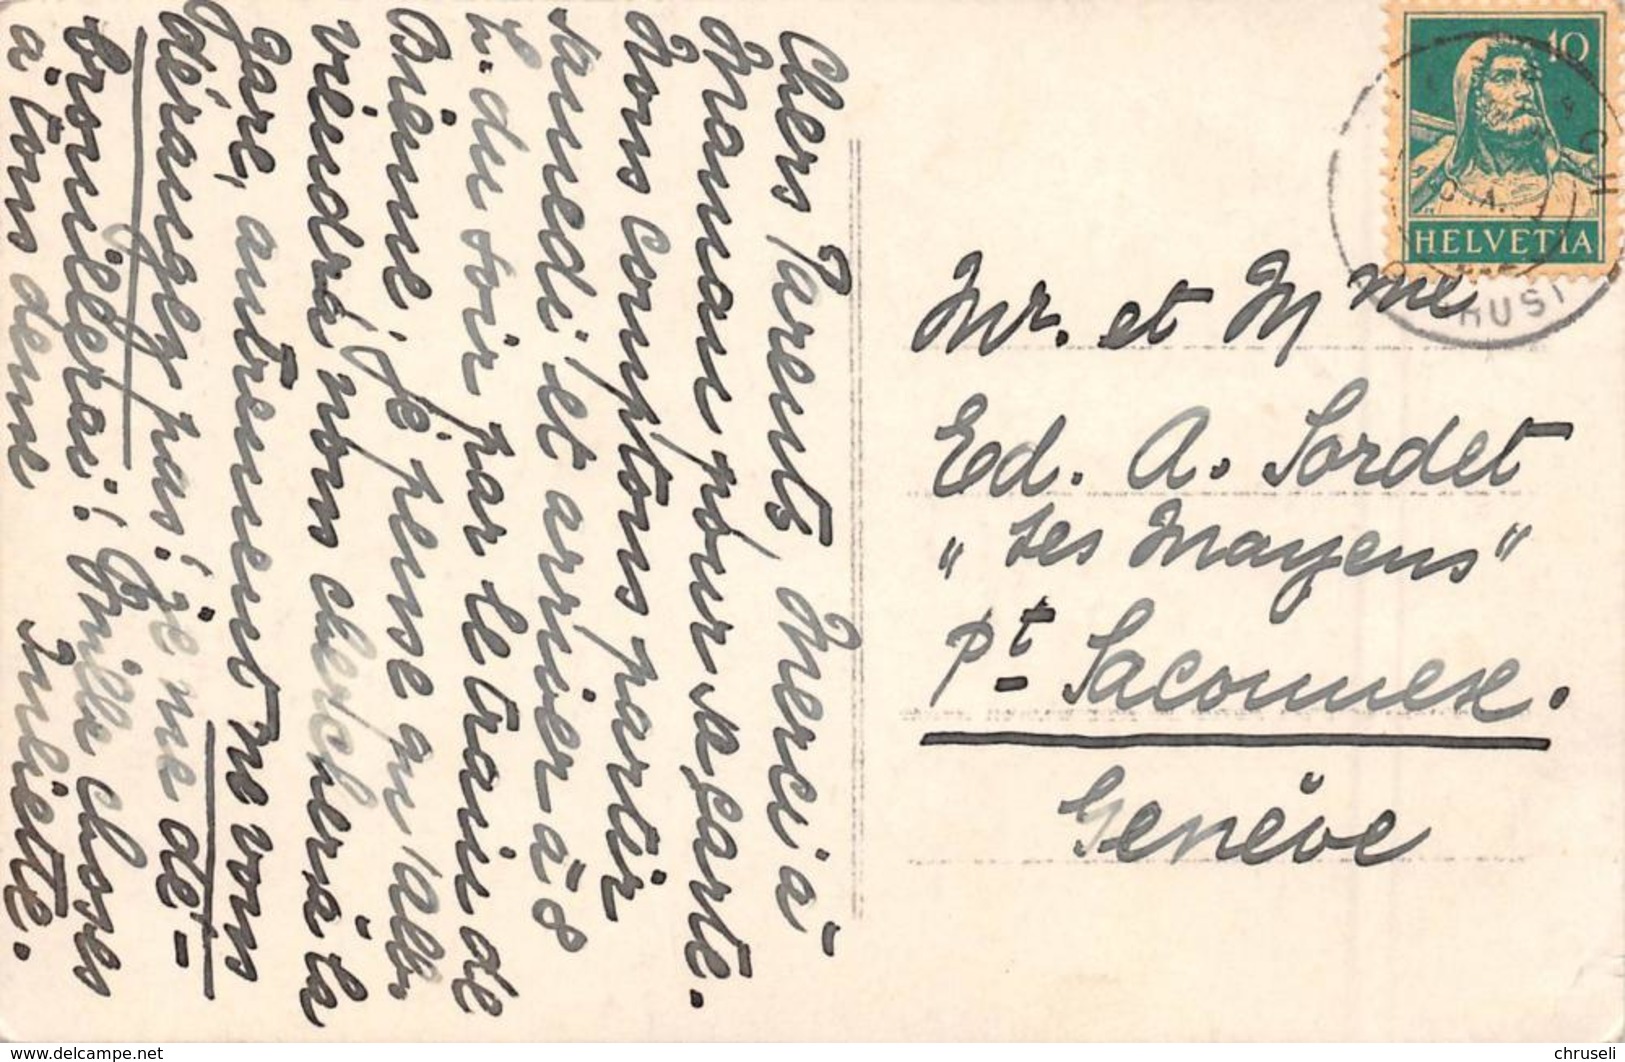 Chers Parents, Merci à
Maman pour sa carte.
Nous comptons partir
samedi et arriver à 8
h. du soir par le train de
Bienne; je pense qu'Alb.
viendra nous chercher à la
gare, autrement ne vous
dérangez pas! je me dé-
brouillerai! Mille choses
à tous deux
Juliette.
10
HELVETIA
Mr. et Mme
Ed. A. Sordet
"Les Mayens"
Pt. Saconnex.
Genève
www.delcampe.net
chruseli